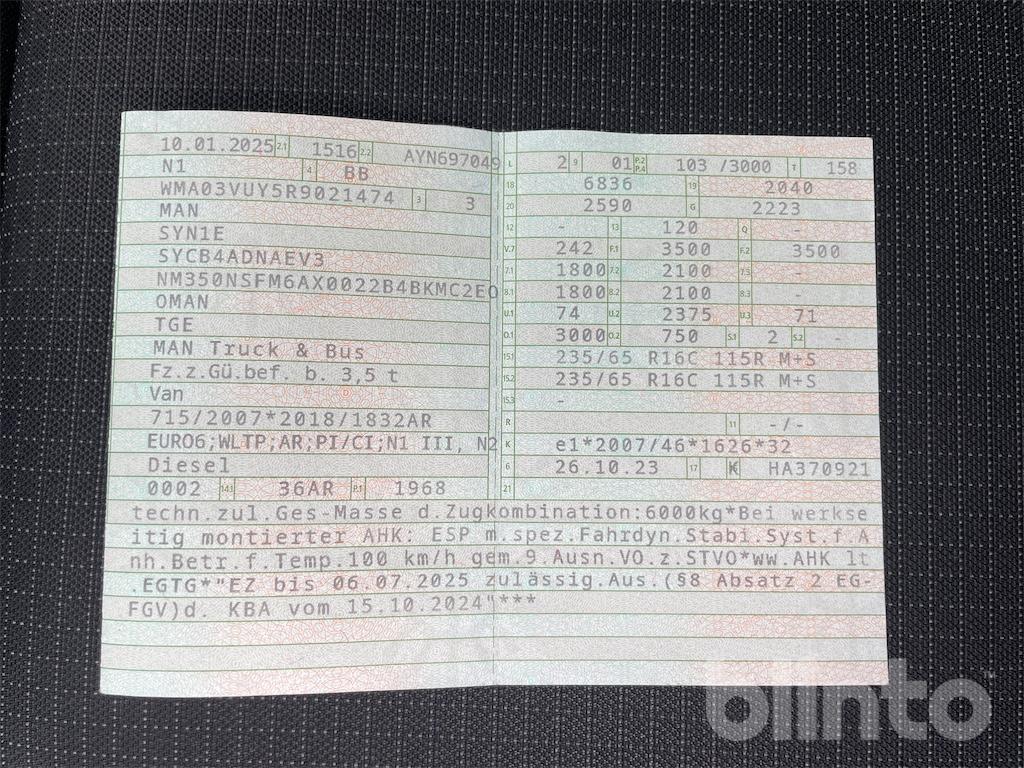 10.01.2025 2.1 1516 2.2 AYN697049
N1 4 BB
WMA03VUY5R9021474 3 3
MAN
SYN1E
SYCB4ADNAEV3
NM350NSFM6AX0022B4BKMC2EO
OMAN
TGE
MAN Truck & Bus
Fz.z.Gü.bef. b. 3,5 t
Van
715/2007*2018/1832AR
EURO6;WLTP;AR;PI/CI;N1 III, N2
Diesel
0002 14.1 36AR P.1 1968
L 2 9 01 P.2 P.4 103 /3000 T 158
18 6836 19 2040
20 2590 G 2223
12 - 13 120 Q -
V.7 242 F.1 3500 F.2 3500
7.1 1800 7.2 2100 7.3 -
8.1 1800 8.2 2100 8.3 -
U.1 74 U.2 2375 U.3 71
O.1 3000 O.2 750 S.1 2 S.2 -
15.1 235/65 R16C 115R M+S
15.2 235/65 R16C 115R M+S
15.3 -
R 11 -/-
K e1*2007/46*1626*32
6 26.10.23 17 K HA370921
21
techn.zul.Ges-Masse d.Zugkombination:6000kg*Bei werkse
itig montierter AHK: ESP m.spez.Fahrdyn.Stabi.Syst.f.A
nh.Betr.f.Temp.100 km/h gem.9.Ausn.VO.z.STVO*ww.AHK lt
.EGTG*"EZ bis 06.07.2025 zulässig.Aus.(§8 Absatz 2 EG-
FGV)d. KBA vom 15.10.2024"***
blinto